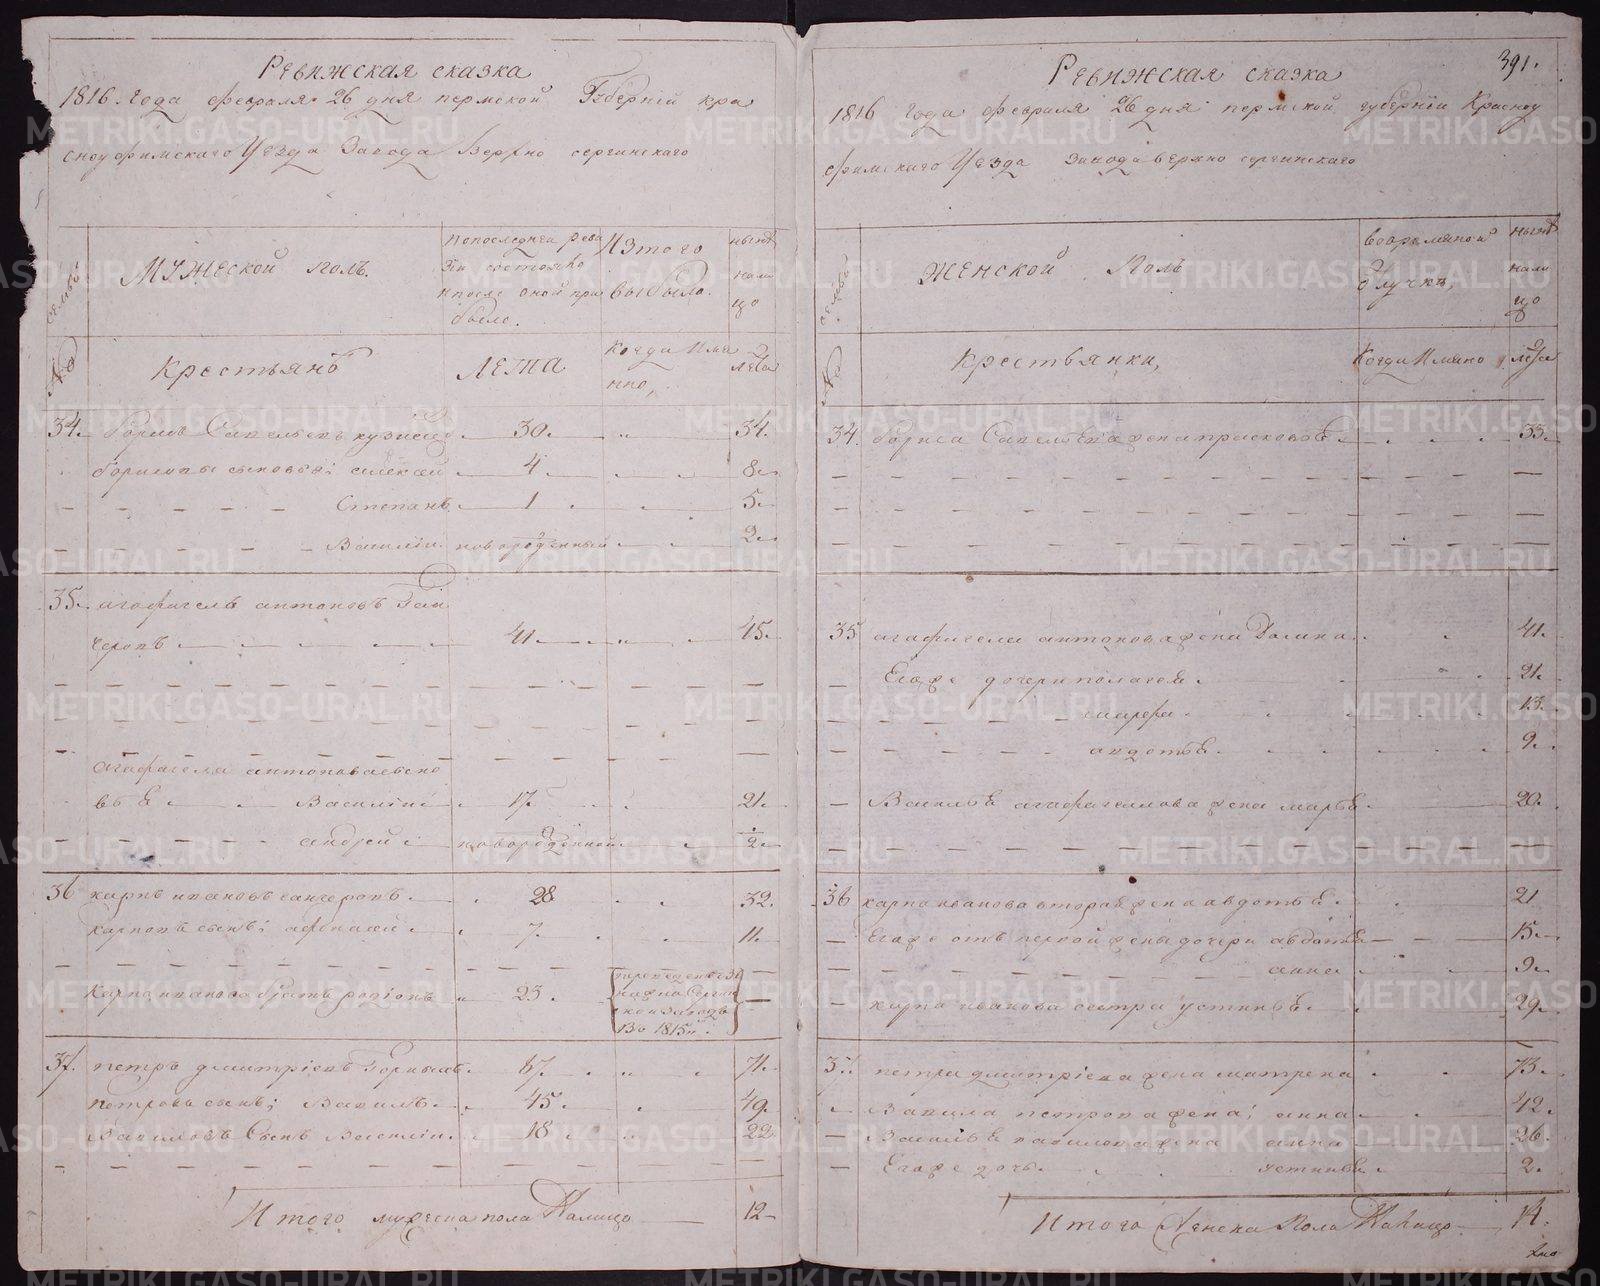 Ревижская сказка
1816. Года февраля 26 дня пермской Губерніи кра
сноуфимскаго Уезда Завода Верхно сергинскаго
семьи
№
Мужеской полъ.
Попоследней реви
зіи состояло
и после оной при
было.
Изтого
выбыло.
ныне
нали
цо
Крестьянъ
Лета
когда имя
нно,
лета
34. борисъ Савельевъ кузнецо 30. 34.
борисовы сыновья; алексей 4 8.
Степанъ 1 5.
Василіи новорожденный 2.
35. агафагелъ антоновъ
41. 45.
агафагела антонова сыно
вья Василіи 17. 21.
андрей новорожденной 2
36 карпъ ивановъ 28 32.
карповъ сынъ; афонасей 7. 11.
карпа иванова братъ родіонъ 23.
переведенъ
завода
въ 1815м.
37. петръ дмитріевъ Горныхъ 67. 71.
петровъ сынъ; Вавилъ 45 49.
Вавиловъ Сынъ Василіи 18 22
Итого мужеска пола Налицо 12
Ревижская сказка
391.
1816 Года февраля 26 дня пермской губерніи Красноу
фимскаго Уезда Завода верхно сергинскаго
семьи
№
Женской Полъ
вовремяной
отлучке,
ныне
нали
цо
Крестьянки,
Когда имяно
лета
34. бориса Савельева жена прасковья 33.
35 агафагела антонова жена Домна 41.
Егоже дочери пелагея 21.
марфа 13.
авдотья 9.
Василья агафагелова жена марья 20.
36 карпа иванова вторая жена авдотья 21
Егоже отъ первой жены дочери авдотья 15.
анна 9.
карпа иванова сестра устинья 29.
37. петра дмитріева жена матрена 73.
Вавила петрова жена; анна 42.
Василья вавилова жена анна 26.
Егоже дочь устинья 2.
Итого Женска Пола Налицо 14.